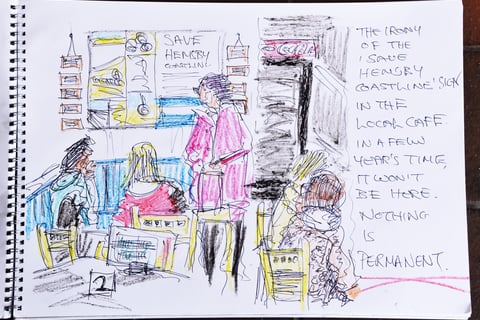 SAVE
HEMSBY
COASTLINE
2
THE IRONY
OF THE
'SAVE
HEMSBY
COASTLINE' SIGN
IN THE
LOCAL CAFE
IN A FEW
YEAR'S TIME,
IT WON'T
BE HERE.
NOTHING
IS
PERMANENT.